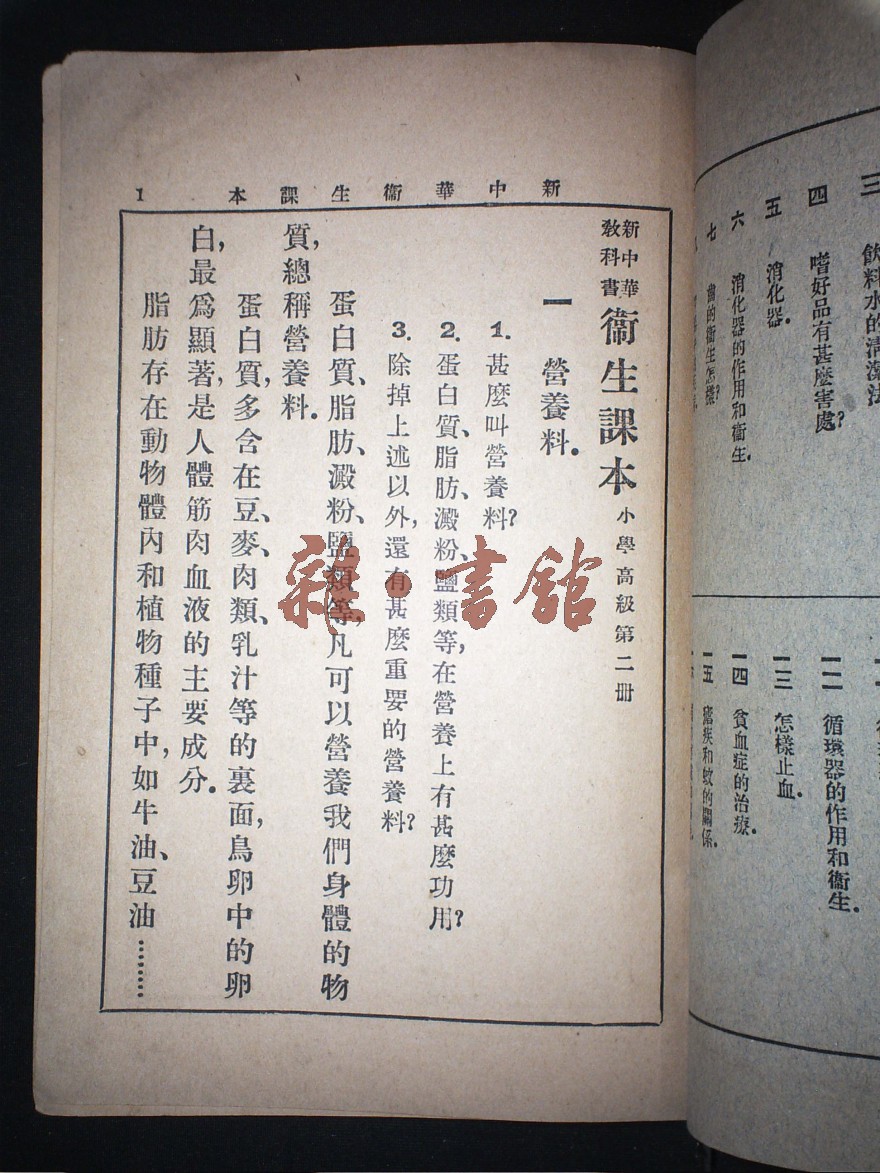 新中華衞生課本 1
新中華
教科書
衞生課本 小學高級第二册
一 營養料.
1. 甚麼叫營養料?
2. 蛋白質、脂肪、澱粉、鹽類等,在營養上有甚麼功用?
3. 除掉上述以外,還有甚麼重要的營養料?
蛋白質、脂肪、澱粉、鹽類等,凡可以營養我們身體的物
質,總稱營養料.
蛋白質,多含在豆、麥、肉類、乳汁等的裏面,鳥卵中的卵
白,最爲顯著,是人體筋肉血液的主要成分.
脂肪存在動物體內和植物種子中,如牛油、豆油………
三 飲料水的清潔法
四 嗜好品有甚麼害處?
五 消化器.
六 消化器的作用和衞生.
七 齒的衞生怎樣?
一二 循環器的作用和衞生.
一三 怎樣止血.
一四 貧血症的治療.
一五 瘧疾和蚊的關係.
雜·書館